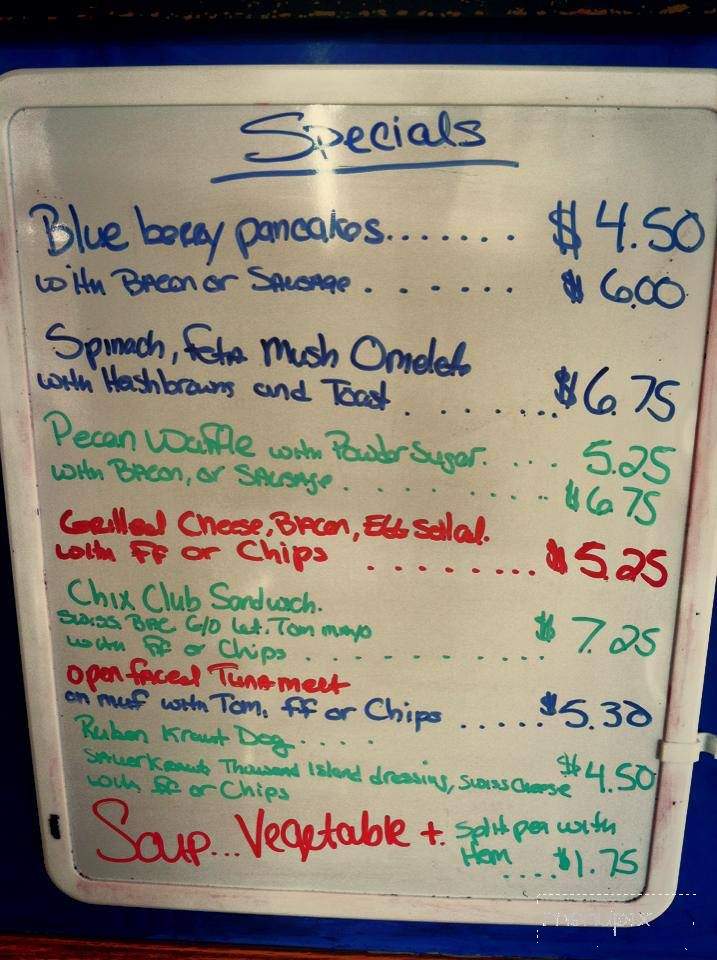 Specials
Blue berry pancakes....... $ 4.50
with Bacon or Sausage . . . . . . $ 6.00
Spinach, feta Mush Omelet
with Hashbrowns and Toast . . . . . . . . $6.75
Pecan Waffle with Powder Sugar. . . . . 5.25
with Bacon, or Sausage . . . . . . . . . $6.75
Grilled Cheese, Bacon, Egg Salad.
with FF or Chips . . . . . . . . . $5.25
Chix Club Sandwich.
Swiss BAC G/O Let. Tom mayo $ 7.25
with FF or Chips . . . . . . . . . . .
Open faced Tuna melt
on muf with Tom, FF or Chips ..... $5.30
Ruben Kraut Dog . . . .
Sauerkraut Thousand Island dressing, Swiss Cheese $4.50
with FF or Chips
Soup... Vegetable + Split pea with
Ham .... $1.75